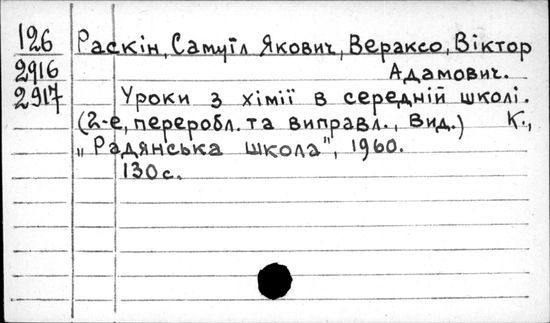 126 Раскін, Самуїл Якович, Вераксо, Віктор
2916 Адамович.
2917 Уроки з хімії в середній школі.
(2-е, переробл. та виправл., вид.) К.,
„Радянська школа", 1960.
130 с.